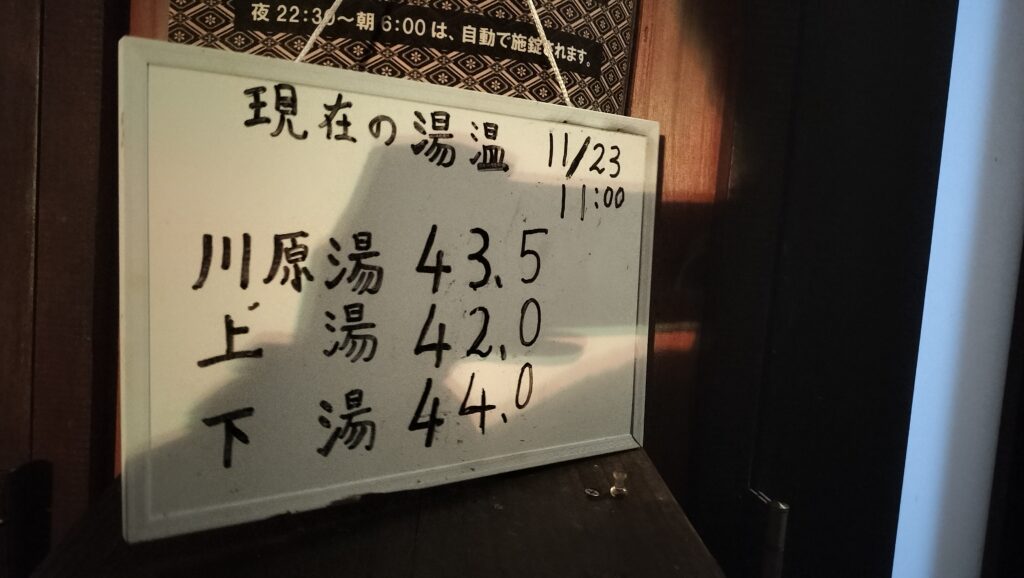 夜 22:30～朝 6:00 は、自動で施錠されます。
現在の湯温 11/23
11:00
川原湯 43.5
上 湯 42.0
下 湯 44.0